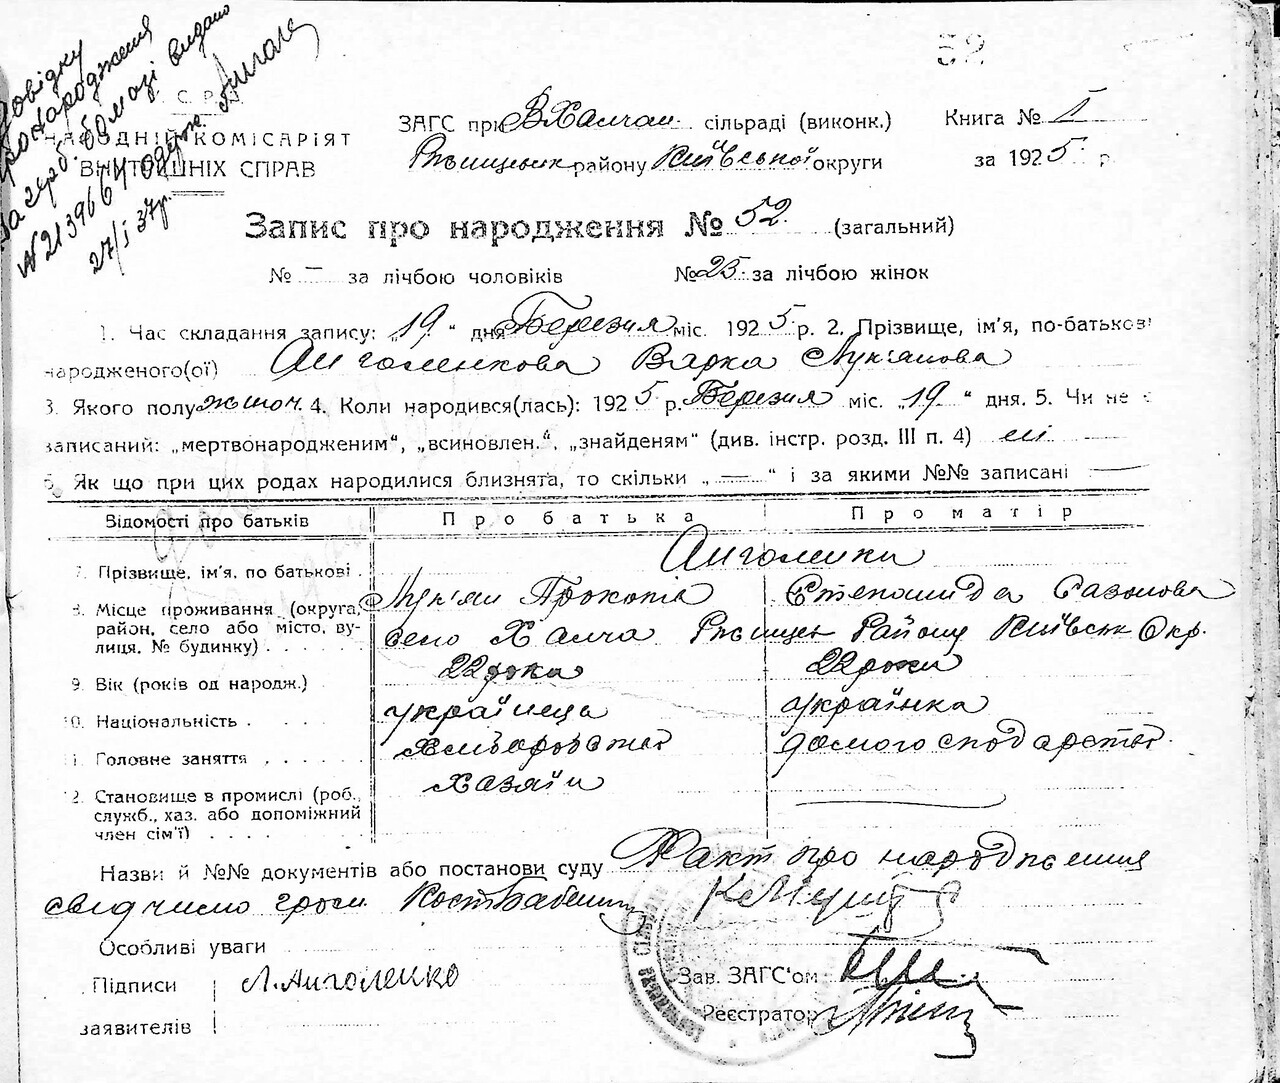 Довідку
про народження
за герб. бомазі видано
№ 213966
27/I 37р.
52
НАРОДНІЙ КОМІСАРІЯТ
ВНУТРІШНІХ СПРАВ
ЗАГС при В Халчан. сільраді (виконк.)
Книга № I
Ржищецьк району Київської округи
за 1925 р.
Запис про народження № 52. (загальний)
№ — за лічбою чоловіків № 25 за лічбою жінок
1. Час складання запису: „19" дня Березня міс. 1925 р. 2. Прізвище, ім'я, по-батькові
народженого(ої) Анголенкова Варка Лук'янова
3. Якого полу жіноч. 4. Коли народився(лась): 1925 р. Березня міс. „19" дня. 5. Чи не є
записаний: „мертвонародженим", „всиновлен.", „знайденям" (див. інстр. розд. III п. 4) ні
6. Як що при цих родах народилися близнята, то скільки „—" і за якими №№ записані —
Відомості про батьків Про батька Про матір
Анголенки
7. Прізвище, ім'я, по батькові
Лук'ян Прокопів Степанида Сазонова
8. Місце проживання (округа,
район, село або місто, ву-
лиця, № будинку)
село Халча Ржищец Району Київськ Окр.
9. Вік (років од народж.) 22 роки 22 роки
10. Національність українець українка
11. Головне заняття Хліборобство домогосподарство.
12. Становище в промислі (роб.,
служб., хаз. або допоміжний
член сім'ї)
Хазяїн
Назви й №№ документів або постанови суду Факт про народження
свідчимо гром.
Особливі уваги
Підписи
заявителів
Л. Анголенко
Зав. ЗАГС'ом
Реєстратор